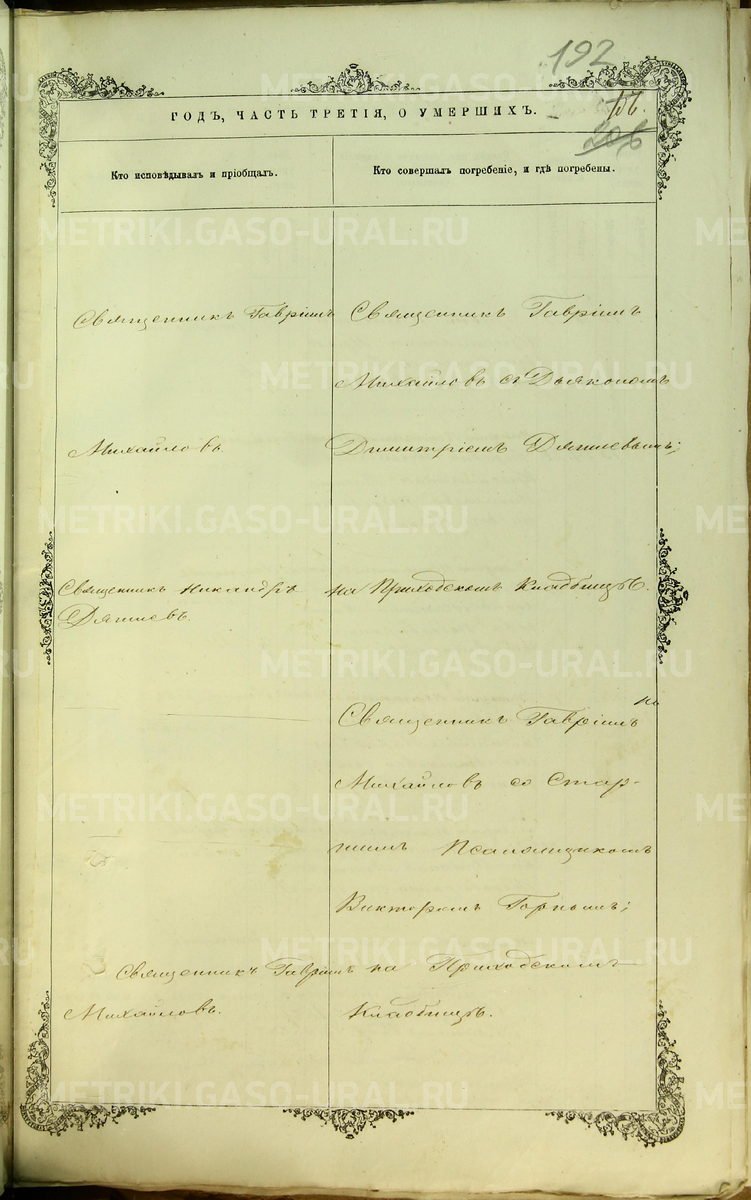 192
156.
206
ГОДЪ, ЧАСТЬ ТРЕТІЯ, О УМЕРШИХЪ.
Кто исповѣдывалъ и пріобщалъ.
Кто совершалъ погребеніе, и гдѣ погребены.
Священникъ Гавріилъ
Михайловъ
Священникъ Никандръ
Дягилевъ.
Священникъ Гавріилъ
Михайловъ.
Священникъ Гавріилъ
Михайловъ съ Дьякономъ
Димитріемъ Дягилевымъ;
на Приходскомъ Кладбищѣ.
Священникъ Гавріилъ
Михайловъ со Стар-
шимъ Псаломщикомъ
Викторомъ Горнымъ;
на Приходскомъ
Кладбищѣ.
METRIKI.GASO-URAL.RU